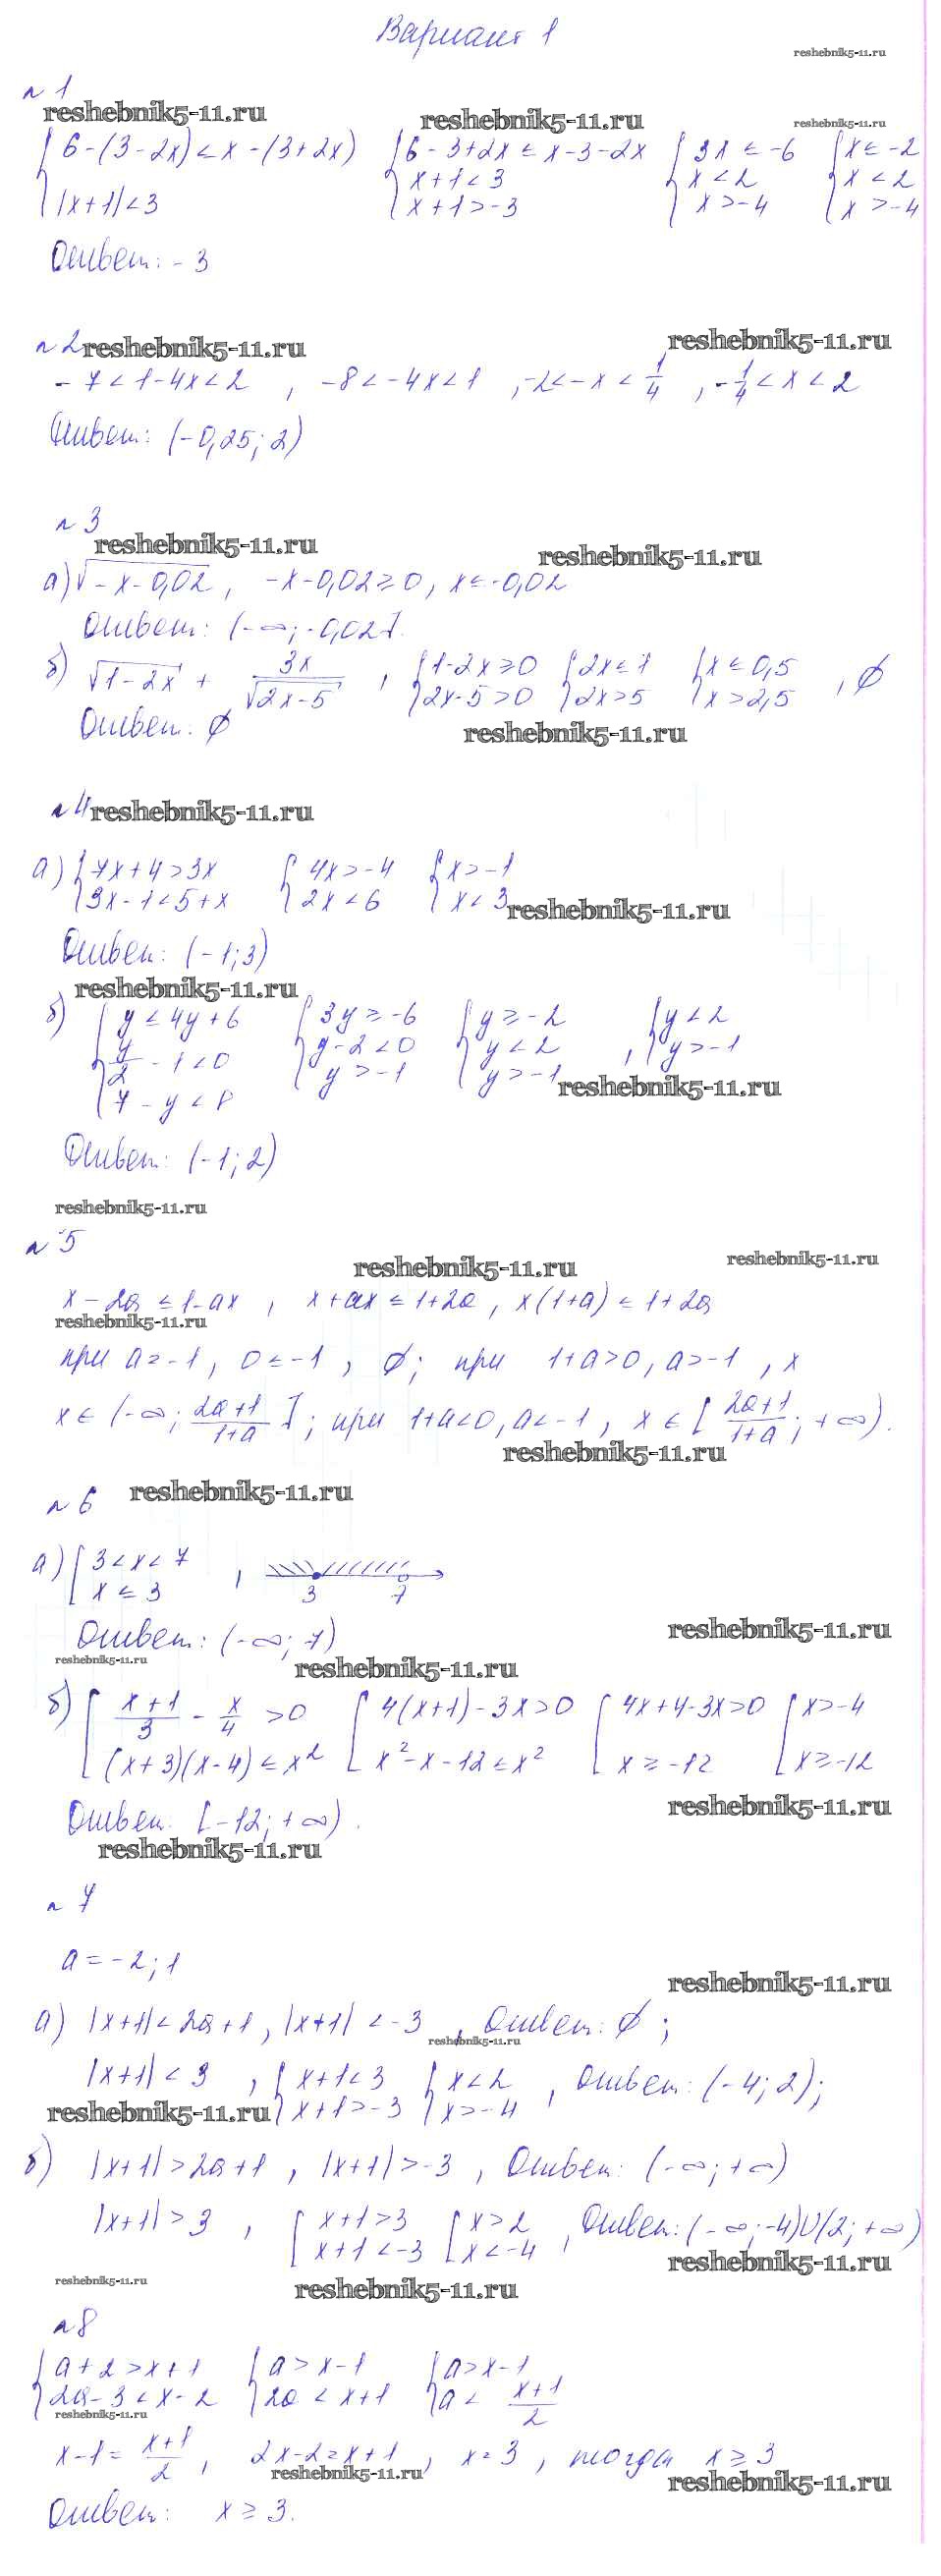 Вариант 1
reshebnik5-11.ru
№1
reshebnik5-11.ru reshebnik5-11.ru reshebnik5-11.ru
{6-(3-2x)<x-(3+2x) {6-3+2x≤x-3-2x {3x≤-6 {x≤-2
x+1<3 x<2 x<2
|x+1|<3 x+1>-3 x>-4 x>-4
Ответ: -3
№2 reshebnik5-11.ru reshebnik5-11.ru
-7<1-4x<2, -8<-4x<1, -2<-x<1/4, -1/4<x<2
Ответ: (-0,25; 2)
№3
reshebnik5-11.ru reshebnik5-11.ru
а) √-x-0,02, -x-0,02≥0, x≤-0,02
Ответ: (-∞; -0,02].
б) √1-2x + 3x/√2x-5, {1-2x≥0 {2x≤1 {x≤0,5, ∅
2x-5>0 2x>5 x>2,5
Ответ: ∅
reshebnik5-11.ru
№4 reshebnik5-11.ru
а) {7x+4>3x {4x>-4 {x>-1
3x-1<5+x 2x<6 x<3 reshebnik5-11.ru
Ответ: (-1; 3)
reshebnik5-11.ru
б) {y≤4y+6 {3y≥-6 {y≥-2 {y<2
y/2-1<0 y-2<0 y<2, y>-1
7-y<8 y>-1 y>-1 reshebnik5-11.ru
Ответ: (-1; 2)
reshebnik5-11.ru
№5
reshebnik5-11.ru reshebnik5-11.ru
x-2a≤1-ax, x+ax≤1+2a, x(1+a)≤1+2a
reshebnik5-11.ru
при a=-1, 0≤-1, ∅; при 1+a>0, a>-1, x
x∈(-∞; 2a+1/1+a]; при 1+a<0, a<-1, x∈[2a+1/1+a; +∞).
reshebnik5-11.ru
№6 reshebnik5-11.ru
а) [3<x<7
x≤3, 3 7
Ответ: (-∞; 7) reshebnik5-11.ru
reshebnik5-11.ru reshebnik5-11.ru
б) [x+1/3 - x/4 >0 [4(x+1)-3x>0 [4x+4-3x>0 [x>-4
(x+3)(x-4)≤x² x²-x-12≤x² x≥-12 x≥-12
Ответ: [-12; +∞). reshebnik5-11.ru
reshebnik5-11.ru
№7
a=-2; 1
reshebnik5-11.ru
а) |x+1|<2a+1, |x+1|<-3, Ответ: ∅;
reshebnik5-11.ru
|x+1|<3, {x+1<3 {x<2, Ответ: (-4; 2);
reshebnik5-11.ru x+1>-3 x>-4
б) |x+1|>2a+1, |x+1|>-3, Ответ: (-∞; +∞)
|x+1|>3, [x+1>3 [x>2, Ответ: (-∞; -4)∪(2; +∞)
x+1<-3 x<-4 reshebnik5-11.ru
reshebnik5-11.ru reshebnik5-11.ru
№8
{a+2>x+1 {a>x-1 {a>x-1
2a-3<x-2 2a<x+1 a<x+1/2
reshebnik5-11.ru
x-1=x+1/2, 2x-2=x+1, x=3, тогда x≥3
reshebnik5-11.ru reshebnik5-11.ru
Ответ: x≥3.